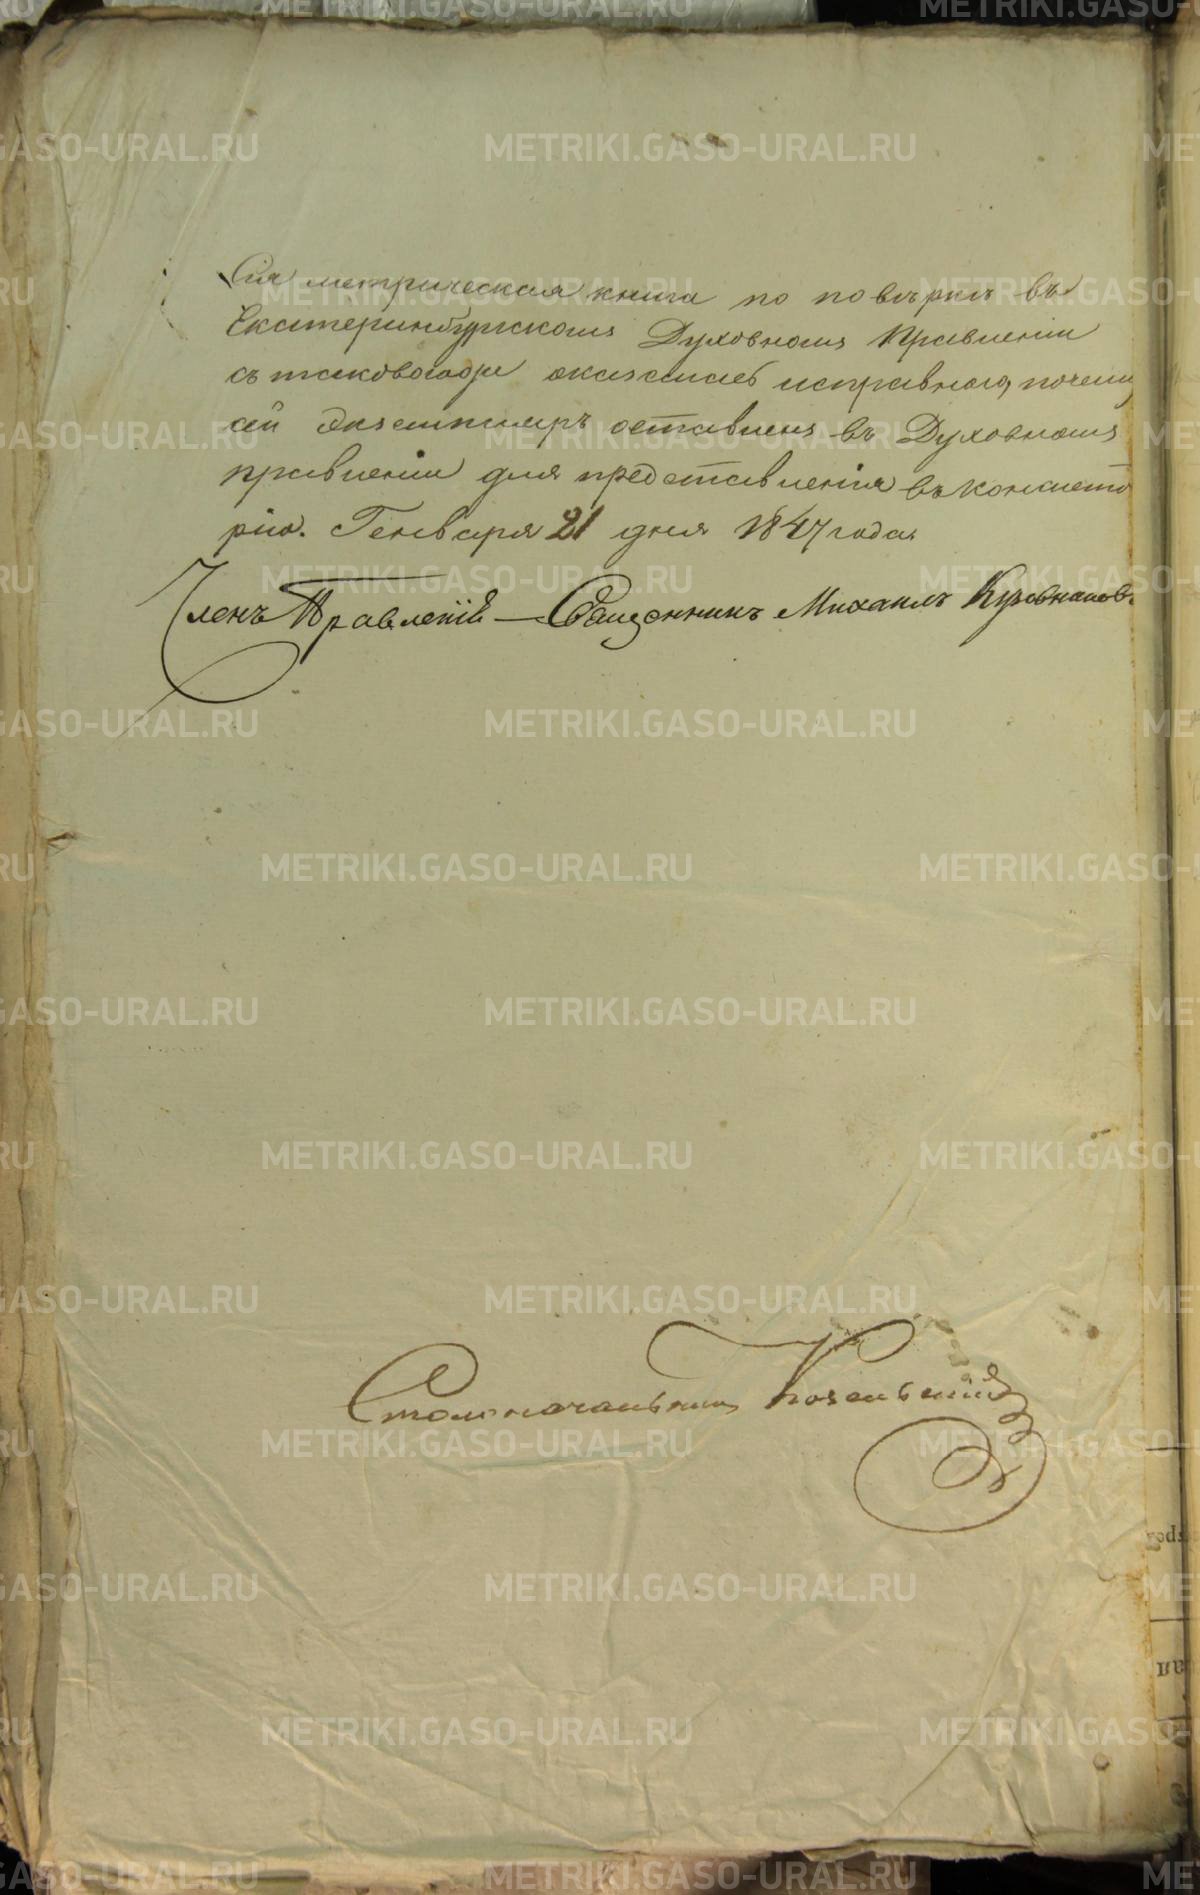 Сія метрическая книга по повѣркѣ въ
Екатеринбургскомъ Духовномъ Правленіи
съ таковою же оказалась исправною, почему
сей экземпляръ оставленъ въ Духовномъ
правленіи для представленія въ консисто
рію. Генваря 21 дня 1847 года.
Членъ Правленія — Священникъ Михаилъ
Столоначальникъ
METRIKI.GASO-URAL.RU